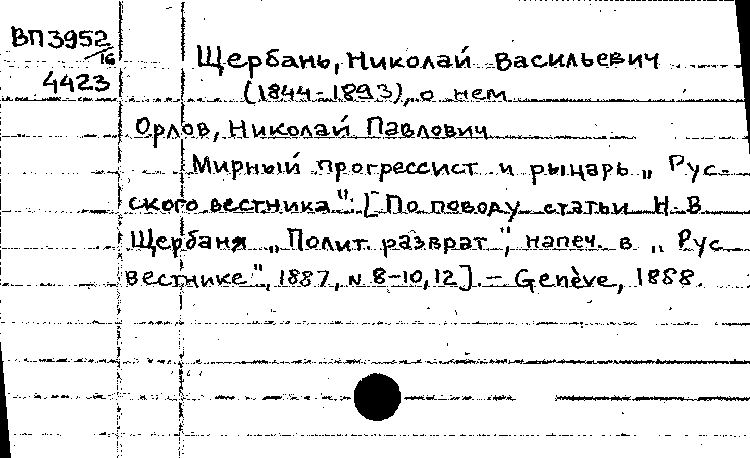 ВП3952
/16
4423
Щербань, Николай Васильевич
(1844-1893), о нем
Орлов, Николай Павлович
Мирный прогрессист и рыцарь „Рус-
ского вестника": [По поводу статьи Н.В
Щербаня „Полит. разврат", напеч. в „Рус
вестнике", 1887, N 8-10, 12]. – Genève, 1888.